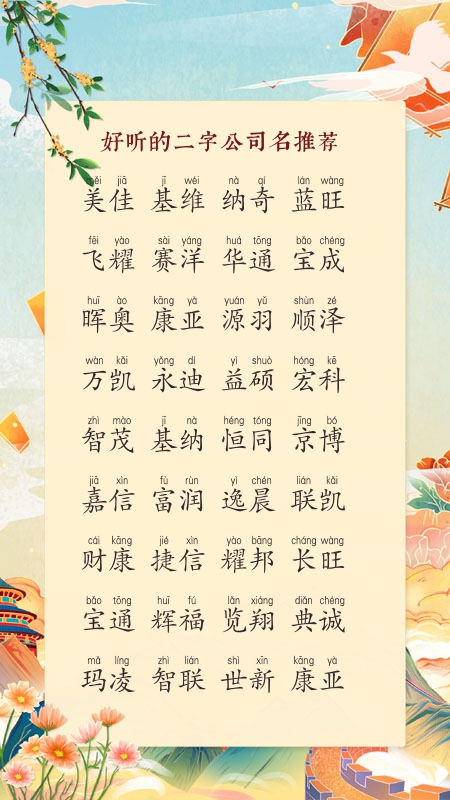 好听的二字公司名推荐
měi jiā jī wéi nà qí lán wàng
美佳 基维 纳奇 蓝旺
fēi yào sài yáng huá tōng bǎo chéng
飞耀 赛洋 华通 宝成
huī ào kāng yà yuán yǔ shùn zé
晖奥 康亚 源羽 顺泽
wàn kǎi yǒng dí yì shuò hóng kē
万凯 永迪 益硕 宏科
zhì mào jī nà héng tóng jīng bó
智茂 基纳 恒同 京博
jiā xìn fù rùn yì chén lián kǎi
嘉信 富润 逸晨 联凯
cái kāng jié xìn yào bāng cháng wàng
财康 捷信 耀邦 长旺
bǎo tōng huī fú lǎn xiáng diǎn chéng
宝通 辉福 览翔 典诚
mǎ líng zhì lián shì xīn kāng yà
玛凌 智联 世新 康亚